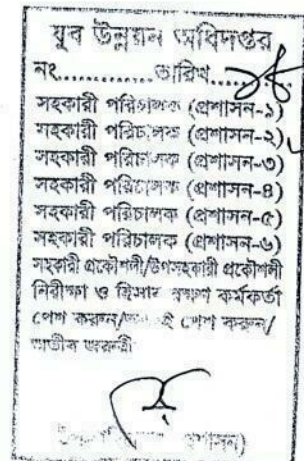 যুব উন্নয়ন অধিদপ্তর
নং............তারিখ............
সহকারী পরিচালক (প্রশাসন-১)
সহকারী পরিচালক (প্রশাসন-২)
সহকারী পরিচালক (প্রশাসন-৩)
সহকারী পরিচালক (প্রশাসন-৪)
সহকারী পরিচালক (প্রশাসন-৫)
সহকারী পরিচালক (প্রশাসন-৬)
সহকারী প্রকৌশলী/উপসহকারী প্রকৌশলী
নিরীক্ষা ও হিসাব রক্ষণ কর্মকর্তা
পেশ করুন/ পেশ করুন/
অতীব জরুরী
প্রশাসন)